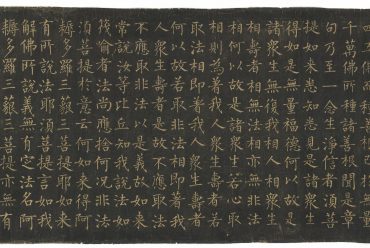 四五佛而種善根已於無量
千萬佛所種諸善根聞是章
句乃至一念生淨信者須菩
提如來悉知悉見是諸眾生
得如是無量福德何以故是
諸眾生無復我相人相眾生
相壽者相無法相亦無非法
相何以故是諸眾生若心取
相則為著我人眾生壽者若
取法相即著我人眾生壽者
何以故若取非法相即著我
人眾生壽者是故不應取法
不應取非法以是義故如來
常說汝等比丘知我說法如
筏喻者法尚應捨何況非法
須菩提於意云何如來得阿
耨多羅三藐三菩提耶如來
有所說法耶須菩提言如我
解佛所說義無有定法名阿
耨多羅三藐三菩提亦無有